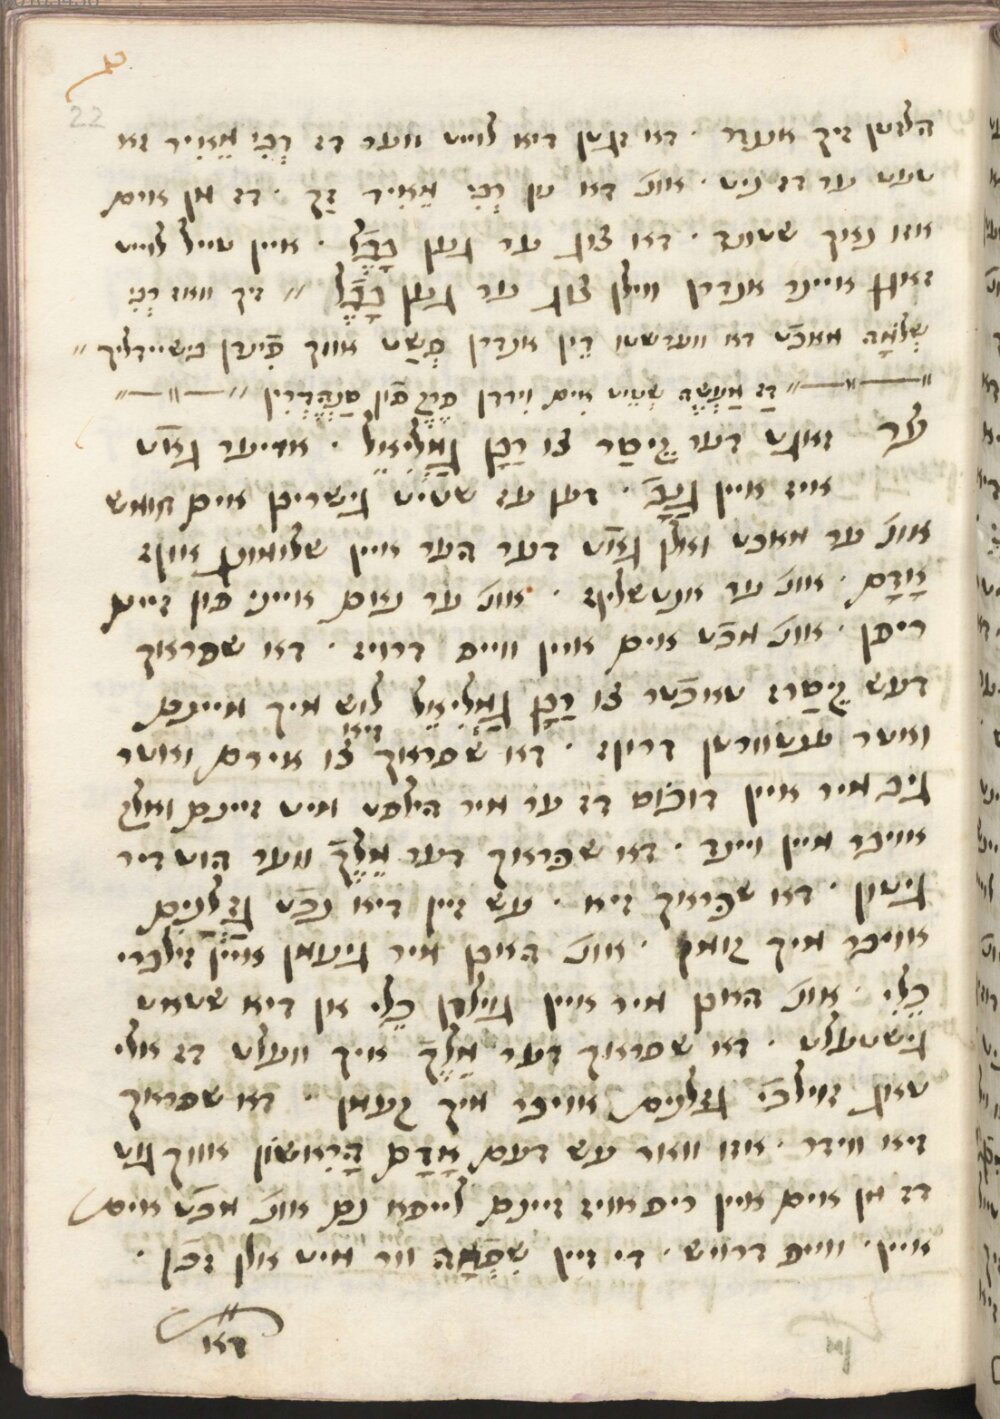 22
הלטן זיך אנדר · דא זגטן דיא לוייט ווער דז רְבִּי מֵאִיר זא
טעט ער דז ניט · אונ' דא מן רְבִּי מֵאִיר זַךְ · דז מן אים
אזו נאך שטונד · דא צוג ער גען בָּבֶל · איין טייל לוייט
זאגן איינר אנדרן ווילן צוג ער גען בָּבֶל // זיך וואז רְבִּי
שְׁלֹמֹה מאכט דא ווערשטו דען אנדרן פְּשַׁט אווך פֿינדן בישיידליך //
דַז מַעֲשֶׂה שְׁטֵיט אִים וידרן פֶּרֶק פֿון סַנְהֶדְרִין
עש זאגט דער קֵיסַר צו רַבָּן גַמְלִיאֵל · אדיער גאט
איז איין גַנָּב · דען עז שטֵיט גישריבן אים חומש
אונ' ער מאכט ואלן גאט דער הער איין שלומונג אויף
אָדָם · אונ' ער אנטשליף · אונ' ער נאם איינ' פון זיינן
ריפן · אונ' מכט אים איין ווייב דרויז · דא שפראך
דעש קֵיסַרז טאכטר צו רַבָּן גַמְלִיאֵל לוש מיך מיינם
ואטר ענטוורטן דרויף · דא שפראך זיא צו אירם ואטר
גיב מיר איין דוכוס דז ער מיר הילפט מיט זיינם ואלק
אוויבר מיין ויינד · דא שפראך דער מֶלֶךְ ווער הוט דיר
גיטון · דא שפראך זיא · עש זיין דיא נכט גַזְלָנִים
אוויבר מיך קומן · אונ' האבן מיר גינומן איין זילברי
כֵּלִי · אונ' האבן מיר איין גוילדן כֵּלִי אן דיא שטאט
גישטעלט · דא שפראך דער מֶלֶךְ איך וועלט דז אלי
טאג זוילכי גזלנים אוויבר מיך קעמן · דא שפראך
זיא ווידר · אזו וואר עש דעם אָדָם הָרִאשׁוֹן אווך גוט
דז מן אים איין ריפ אויז זיינם לייפא נם אונ' מכט אים
איין · ווייב דרויש · די זיין שִׁפְחָה וור מיט אלן זכן ·
דאו